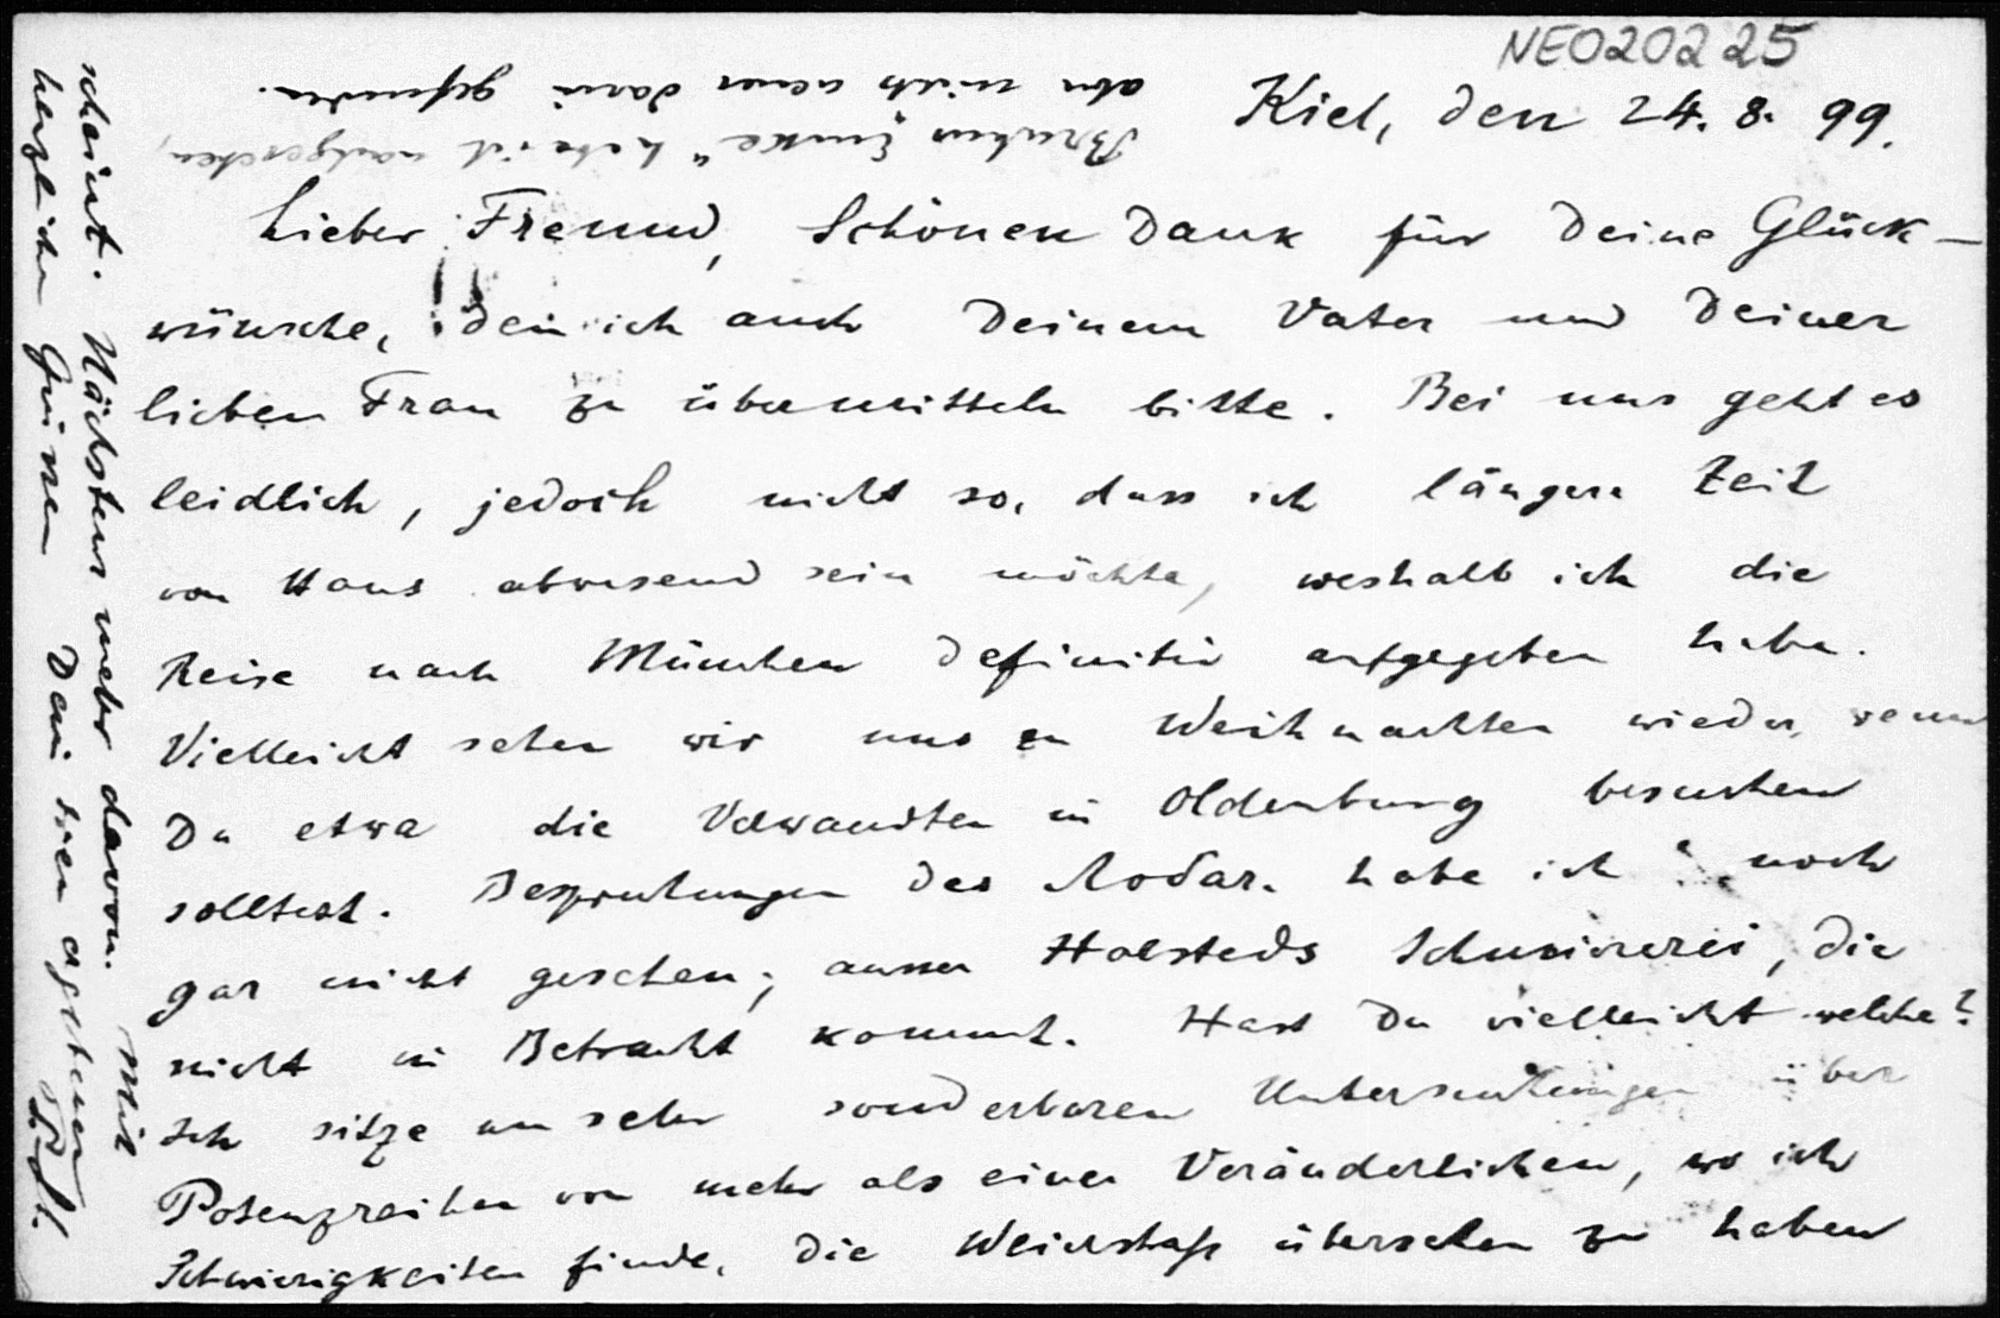 NEO20225
Kiel, den 24. 8. 99.
Lieber Freund, Schönen Dank für Deine Glück-
wünsche, den ich auch Deinem Vater und Deiner
lieben Frau zu übermitteln bitte. Bei uns geht es
leidlich, jedoch nicht so, dass ich längere Zeit
von Haus abwesend sein möchte, weshalb ich die
Reise nach München definitiv aufgegeben habe.
Vielleicht sehen wir uns zu Weihnachten wieder, wenn
Du etwa die Verwandten in Oldenburg besuchen
solltest. Besprechungen des habe ich noch
gar nicht gesehen; ausser Halsteds Schmiererei, die
nicht in Betracht kommt. Hast Du vielleicht welche?
Ich sitze an sehr sonderbaren Untersuchungen über
Potenzreihen von mehr als einer Veränderlichen, wo ich
Schwierigkeiten finde, die Weierstrass übersehen zu haben
scheint. Nächstens mehr davon. Mit
herzlichen Grüssen Dein treu ergebener
P. St.
" habe ich nachgesehen,
aber nichts neues darin gefunden.